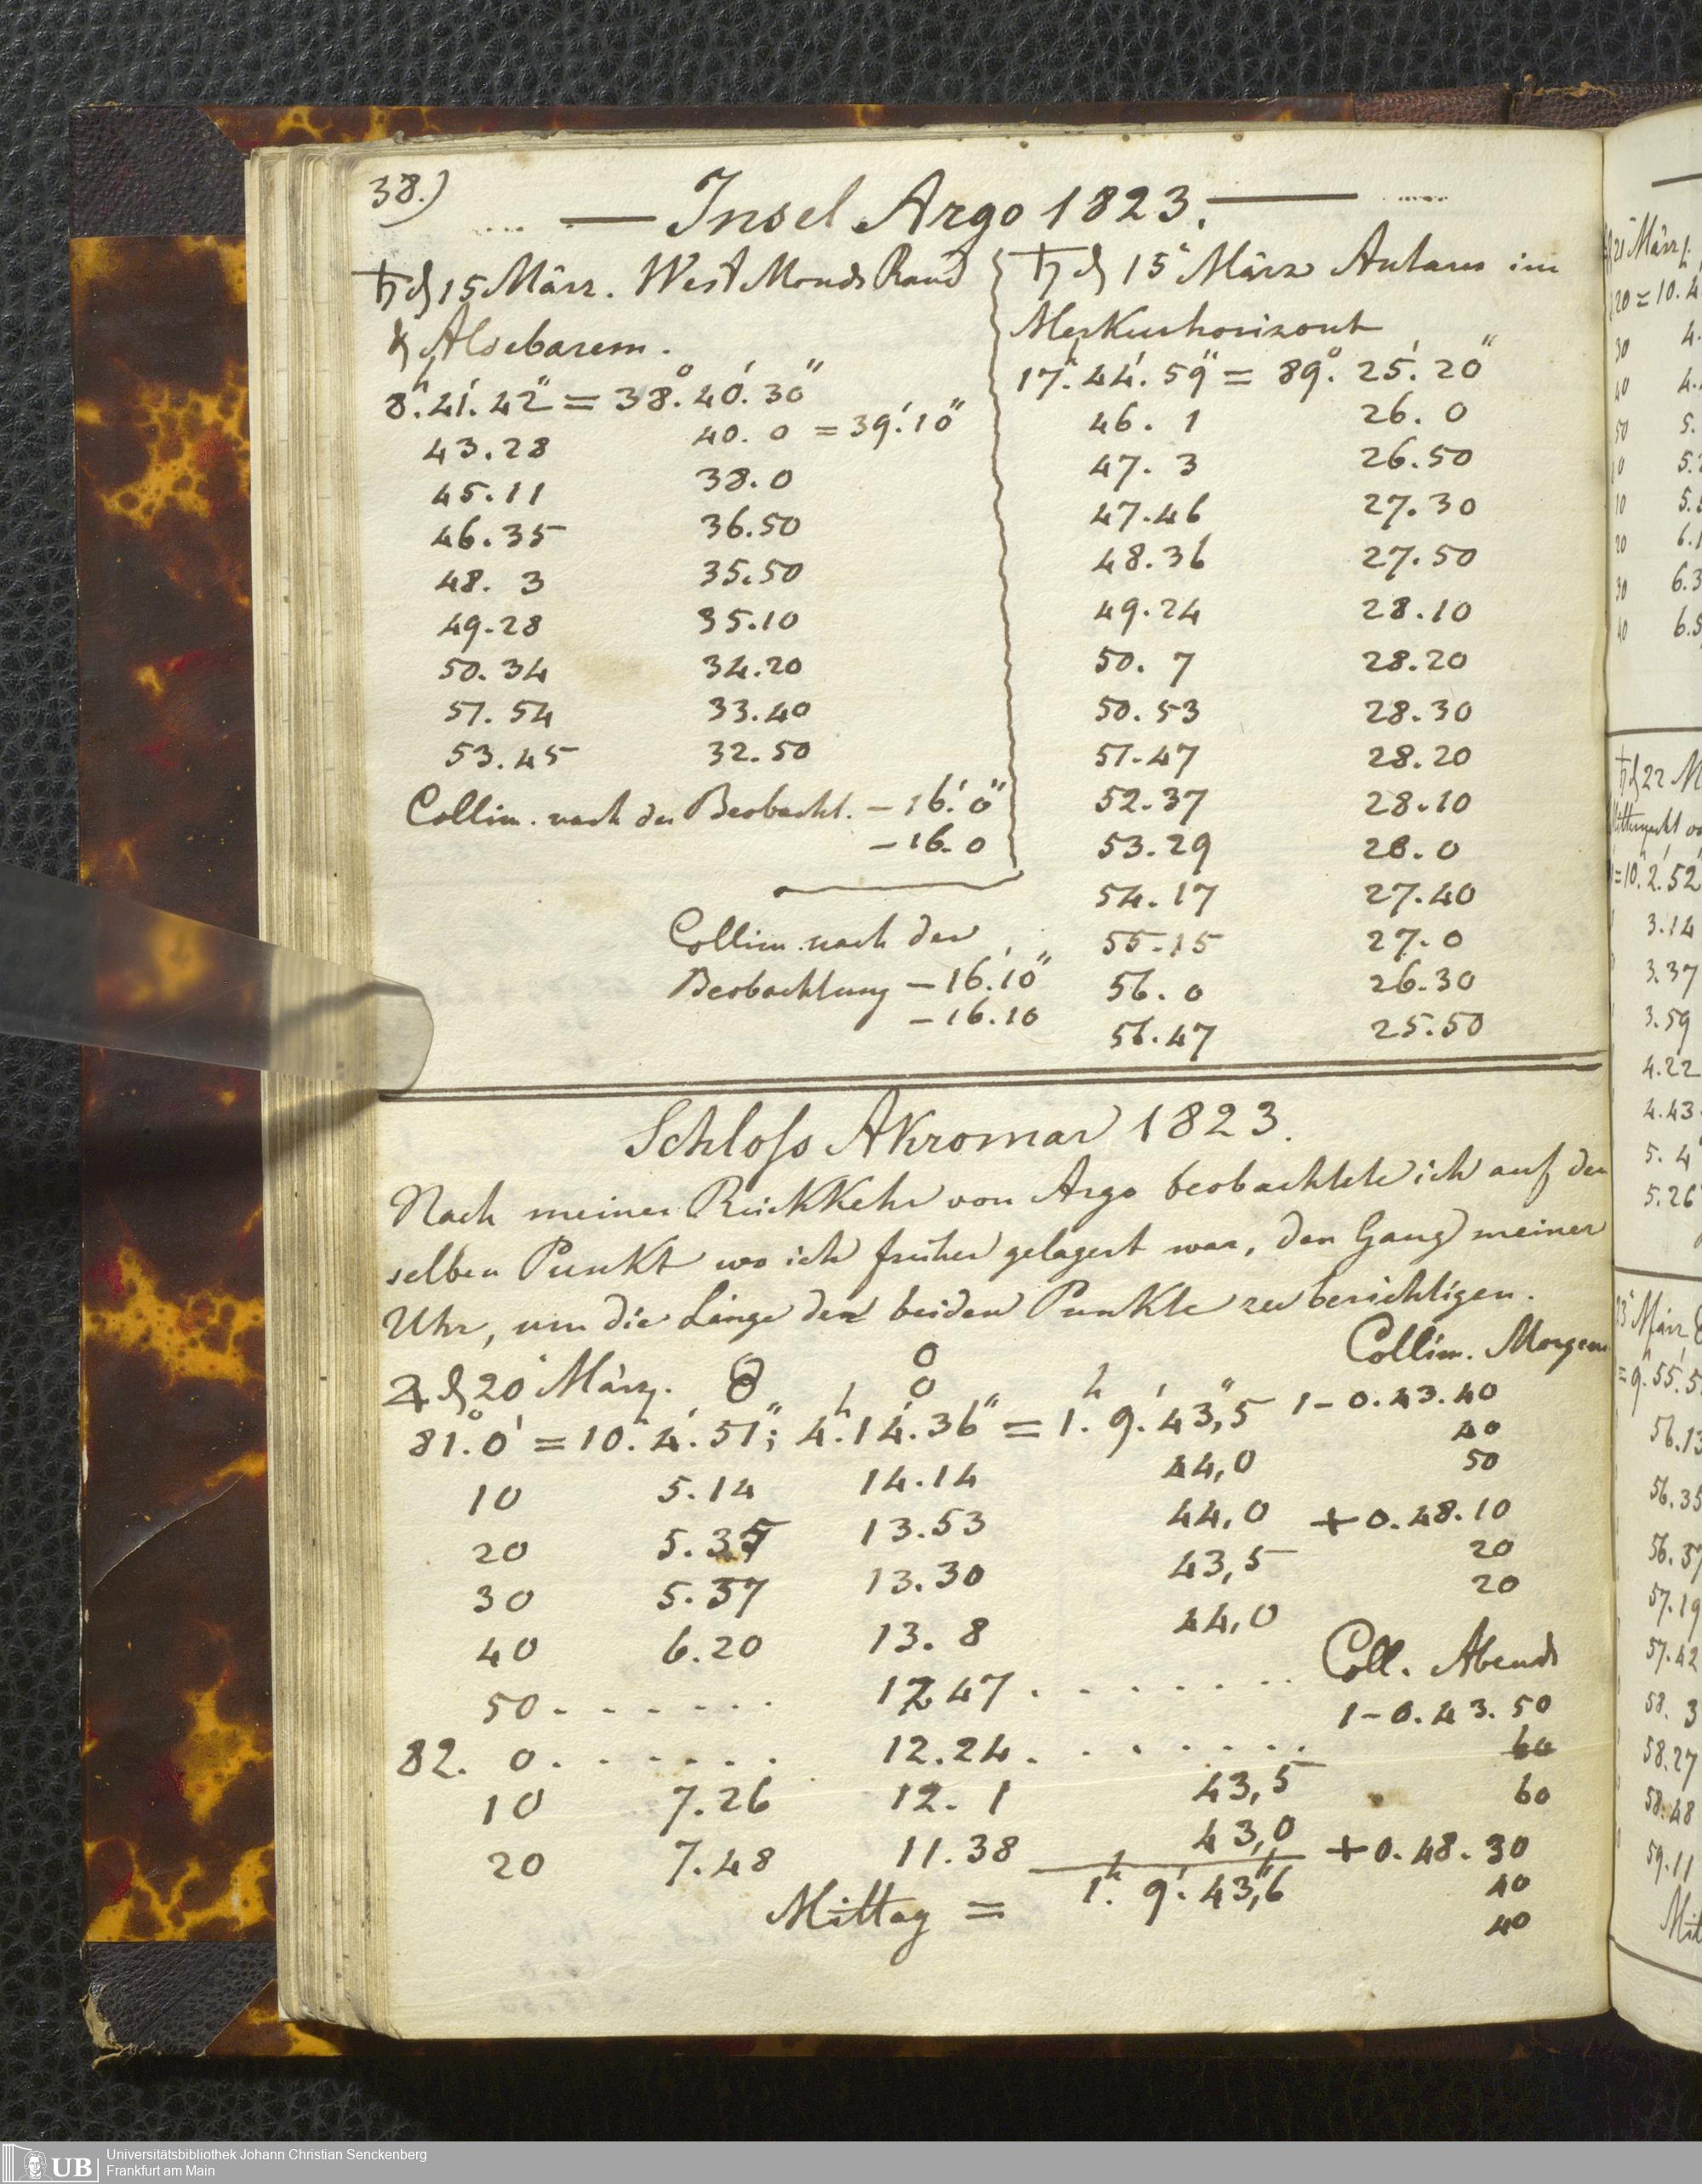 38.)
— Insel Argo 1823. —
♄ d 15 März. West Monds Rand
& Aldebarem.
8h.41.'42" = 38°.40.'30"
43.28 40.0 = 39.'10"
45.11 38.0
46.35 36.50
48. 3 35.50
49.28 35.10
50.34 34.20
51.54 33.40
53.45 32.50
Collim. nach der Beobacht. – 16.'0"
– 16.0
♄ d 15 März Antares im
Merkurhorizont
17h.44.'59" = 89°.25.'20"
46. 1 26.0
47. 3 26.50
47.46 27.30
48.36 27.50
49.24 28.10
50. 7 28.20
50.53 28.30
51.47 28.20
52.37 28.10
53.29 28.0
54.17 27.40
55.15 27.0
56. 0 26.30
56.47 25.50
Collim. nach der
Beobachtung – 16.'10"
– 16.10
Schloss AKromar 1823.
Nach meiner RückKehr von Argo beobachtete ich auf den
selben PunKt wo ich früher gelagert war, den Gang meiner
Uhr, um die Länge der beiden PunKte zu berichtigen.
♃ d 20 März.
81°.0' = 10h.4.'51"; 4h.14.'36" = 1h.9.'43,"5
10 5.14 14.14 44,0
20 5.35 13.53 44,0
30 5.57 13.30 43,5
40 6.20 13. 8 44,0
50 . . . . . . 12.47 . . . . . . .
82. 0 . . . . . . 12.24 . . . . . . .
10 7.26 12. 1 43,5
20 7.48 11.38 43,0
Mittag = 1h.9.'43,"6
Collim. Morgens
1 – 0.43.40
40
50
+ 0.48.10
20
20
Coll. Abends
1 – 0.43.50
60
60
+ 0.48.30
40
40
21 März
20 = 10.4
30 4.
40 4.
50 5.
10
20
30 6.3
40
♄ d 22 M
= 10.'2.'52
3.14
3.37
3.59
4.22
4.43
5. 4
5.26
23 März
= 9.55.5
56.13
56.35
56.57
57.19
57.42
58. 3
58.27
58.48
59.11
Mit
UB Universitätsbibliothek Johann Christian Senckenberg
Frankfurt am Main